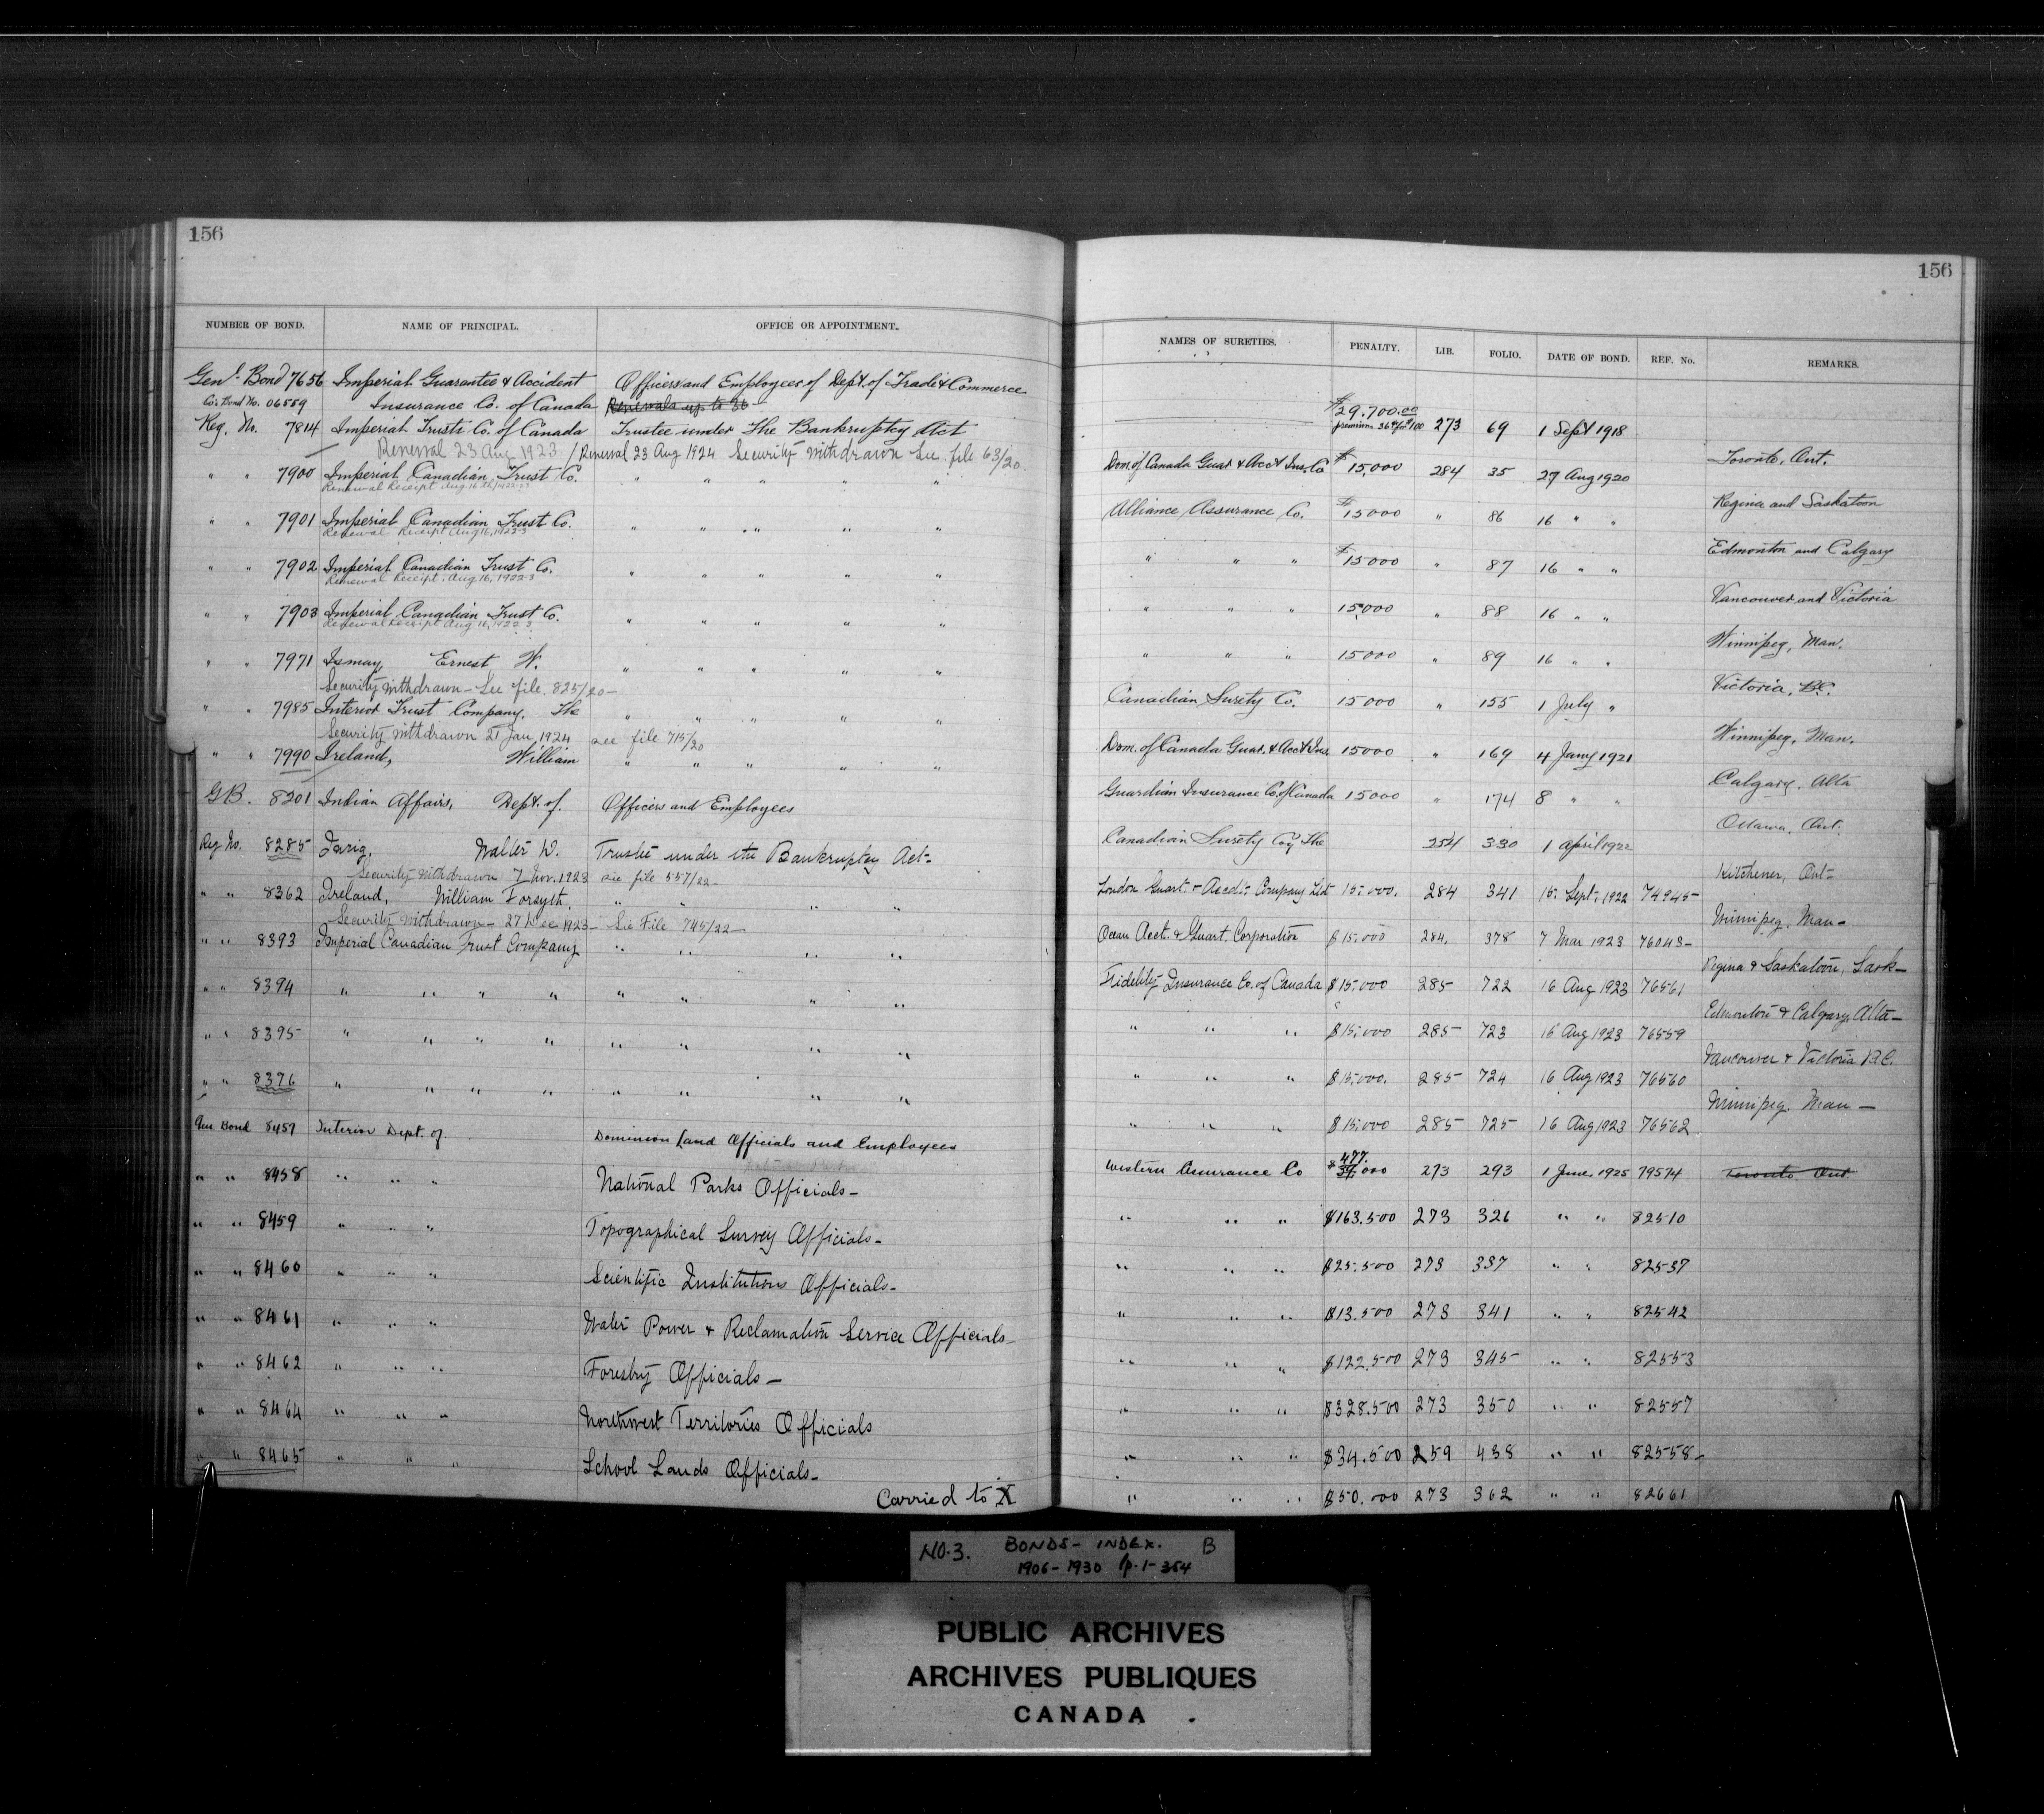 156
156
NUMBER OF BOND. NAME OF PRINCIPAL. OFFICE OR APPOINTMENT.
NAMES OF SURETIES. PENALTY. LIB. FOLIO. DATE OF BOND. REF. No. REMARKS.
Genl. Bond 7656 Imperial Guarantee & Accident Officers and Employees of Dept. of Trade & Commerce
Co's Bond No. 06559 Insurance Co. of Canada Renewals up to 36
Reg. No. 7814 Imperial Trusts Co. of Canada Trustee under The Bankruptcy Act
Renewal 23 Aug 1923 / Renewal 23 Aug 1924 Security withdrawn See file 63/20.
" " 7900 Imperial Canadian Trust Co. " " " " "
Renewal Receipt Aug 16th/1922-23
" " 7901 Imperial Canadian Trust Co. " " " " "
Renewal Receipt Aug 16, 1922-3
" " 7902 Imperial Canadian Trust Co. " " " " "
Renewal Receipt, Aug 16, 1922-3
" " 7903 Imperial Canadian Trust Co. " " " " "
Renewal Receipt Aug 16, 1922-3
" " 7971 Ismay, Ernest W. " " " " "
Security withdrawn - See file. 825/20 -
" " 7985 Interior Trust Company, The " " " " "
Security withdrawn 21 Jan, 1924 see file 715/20
" " 7990 Ireland, William " " " " "
G B. 8201 Indian Affairs, Dept. of. Officers and Employees
Reg No. 8285 Zarig, Walter W. Trustee under the Bankruptcy Act-
Security withdrawn 7 Nov. 1923 see file 557/22-
" " 8362 Ireland, William Forsyth. " " " "
Security withdrawn - 27 Dec 1923 - See File 745/22-
" " 8393 Imperial Canadian Trust Company " " " "
" " 8394 " " " " " " " "
" " 8395 " " " " " " " "
" " 8376 " " " " " " " "
Gen Bond 8457 Interior Dept. of. Dominion Land Officials and Employees
" " 8458 " " " National Parks Officials-
" " 8459 " " " Topographical Survey Officials-
" " 8460 " " " Scientific Institutions Officials-
" " 8461 " " " Water Power & Reclamation Service Officials-
" " 8462 " " " Forestry Officials-
" " 8464 " " " Northwest Territories Officials
" " 8465 " " " School Lands Officials-
Carried to X
$29.700.00 premium 36¢ 273 69 1 Sept 1918
Dom. of Canada Guar & Acct Ins. Co $15,000 284 35 27 Aug 1920 Toronto, Ont.
Alliance Assurance Co. $15000 " 86 16 " " Regina and Saskatoon
" " " $15000 " 87 16 " " Edmonton and Calgary
" " " 15,000 " 88 16 " " Vancouver and Victoria
" " " 15000 " 89 16 " " Winnipeg, Man.
Canadian Surety Co. 15000 " 155 1 July " Victoria, B.C.
Dom. of Canada Guar. & Acct Ins. 15000 " 169 4 Jany 1921 Winnipeg, Man.
Guardian Insurance Co. of Canada 15000 " 174 8 " " Calgary, Alta
Canadian Surety Coy The 254 330 1 April 1922 Ottawa, Ont.
London Guart. & Accdt. Company Ltd 15,000. 284 341 15. Sept, 1922 74945- Kitchener, Ont-
Ocean Acct. & Guart. Corporation $15,000 284. 378 7 Mar 1923 76043- Winnipeg, Man-
Fidelity Insurance Co. of Canada $15,000 285 722 16 Aug 1923 76561 Regina & Saskatoon, Sask-
" " " $15,000 285- 723 16 Aug 1923 76559 Edmonton & Calgary, Alta-
" " " $15,000. 285- 724 16 Aug 1923 76560 Vancouver & Victoria B.C.
" " " $15,000 285- 725- 16 Aug 1923 76562 Winnipeg, Man -
Western Assurance Co $477.000 273 293 1 June, 1925 79574 Toronto Ont.
" " " $163.500 273 326 " " 82510
" " " $25.500 273 337 " " 82537
" " " $13.500 273 341 " " 82542
" " " $122.500 273 345- " " 82553
" " " $328.500 273 350 " " 82557
" " " $34.500 259 438 " " 82558-
" " " $50.000 273 362 " " 82661
NO. 3. BONDS - INDEX. B
1906-1930 p. 1-354
PUBLIC ARCHIVES
ARCHIVES PUBLIQUES
CANADA